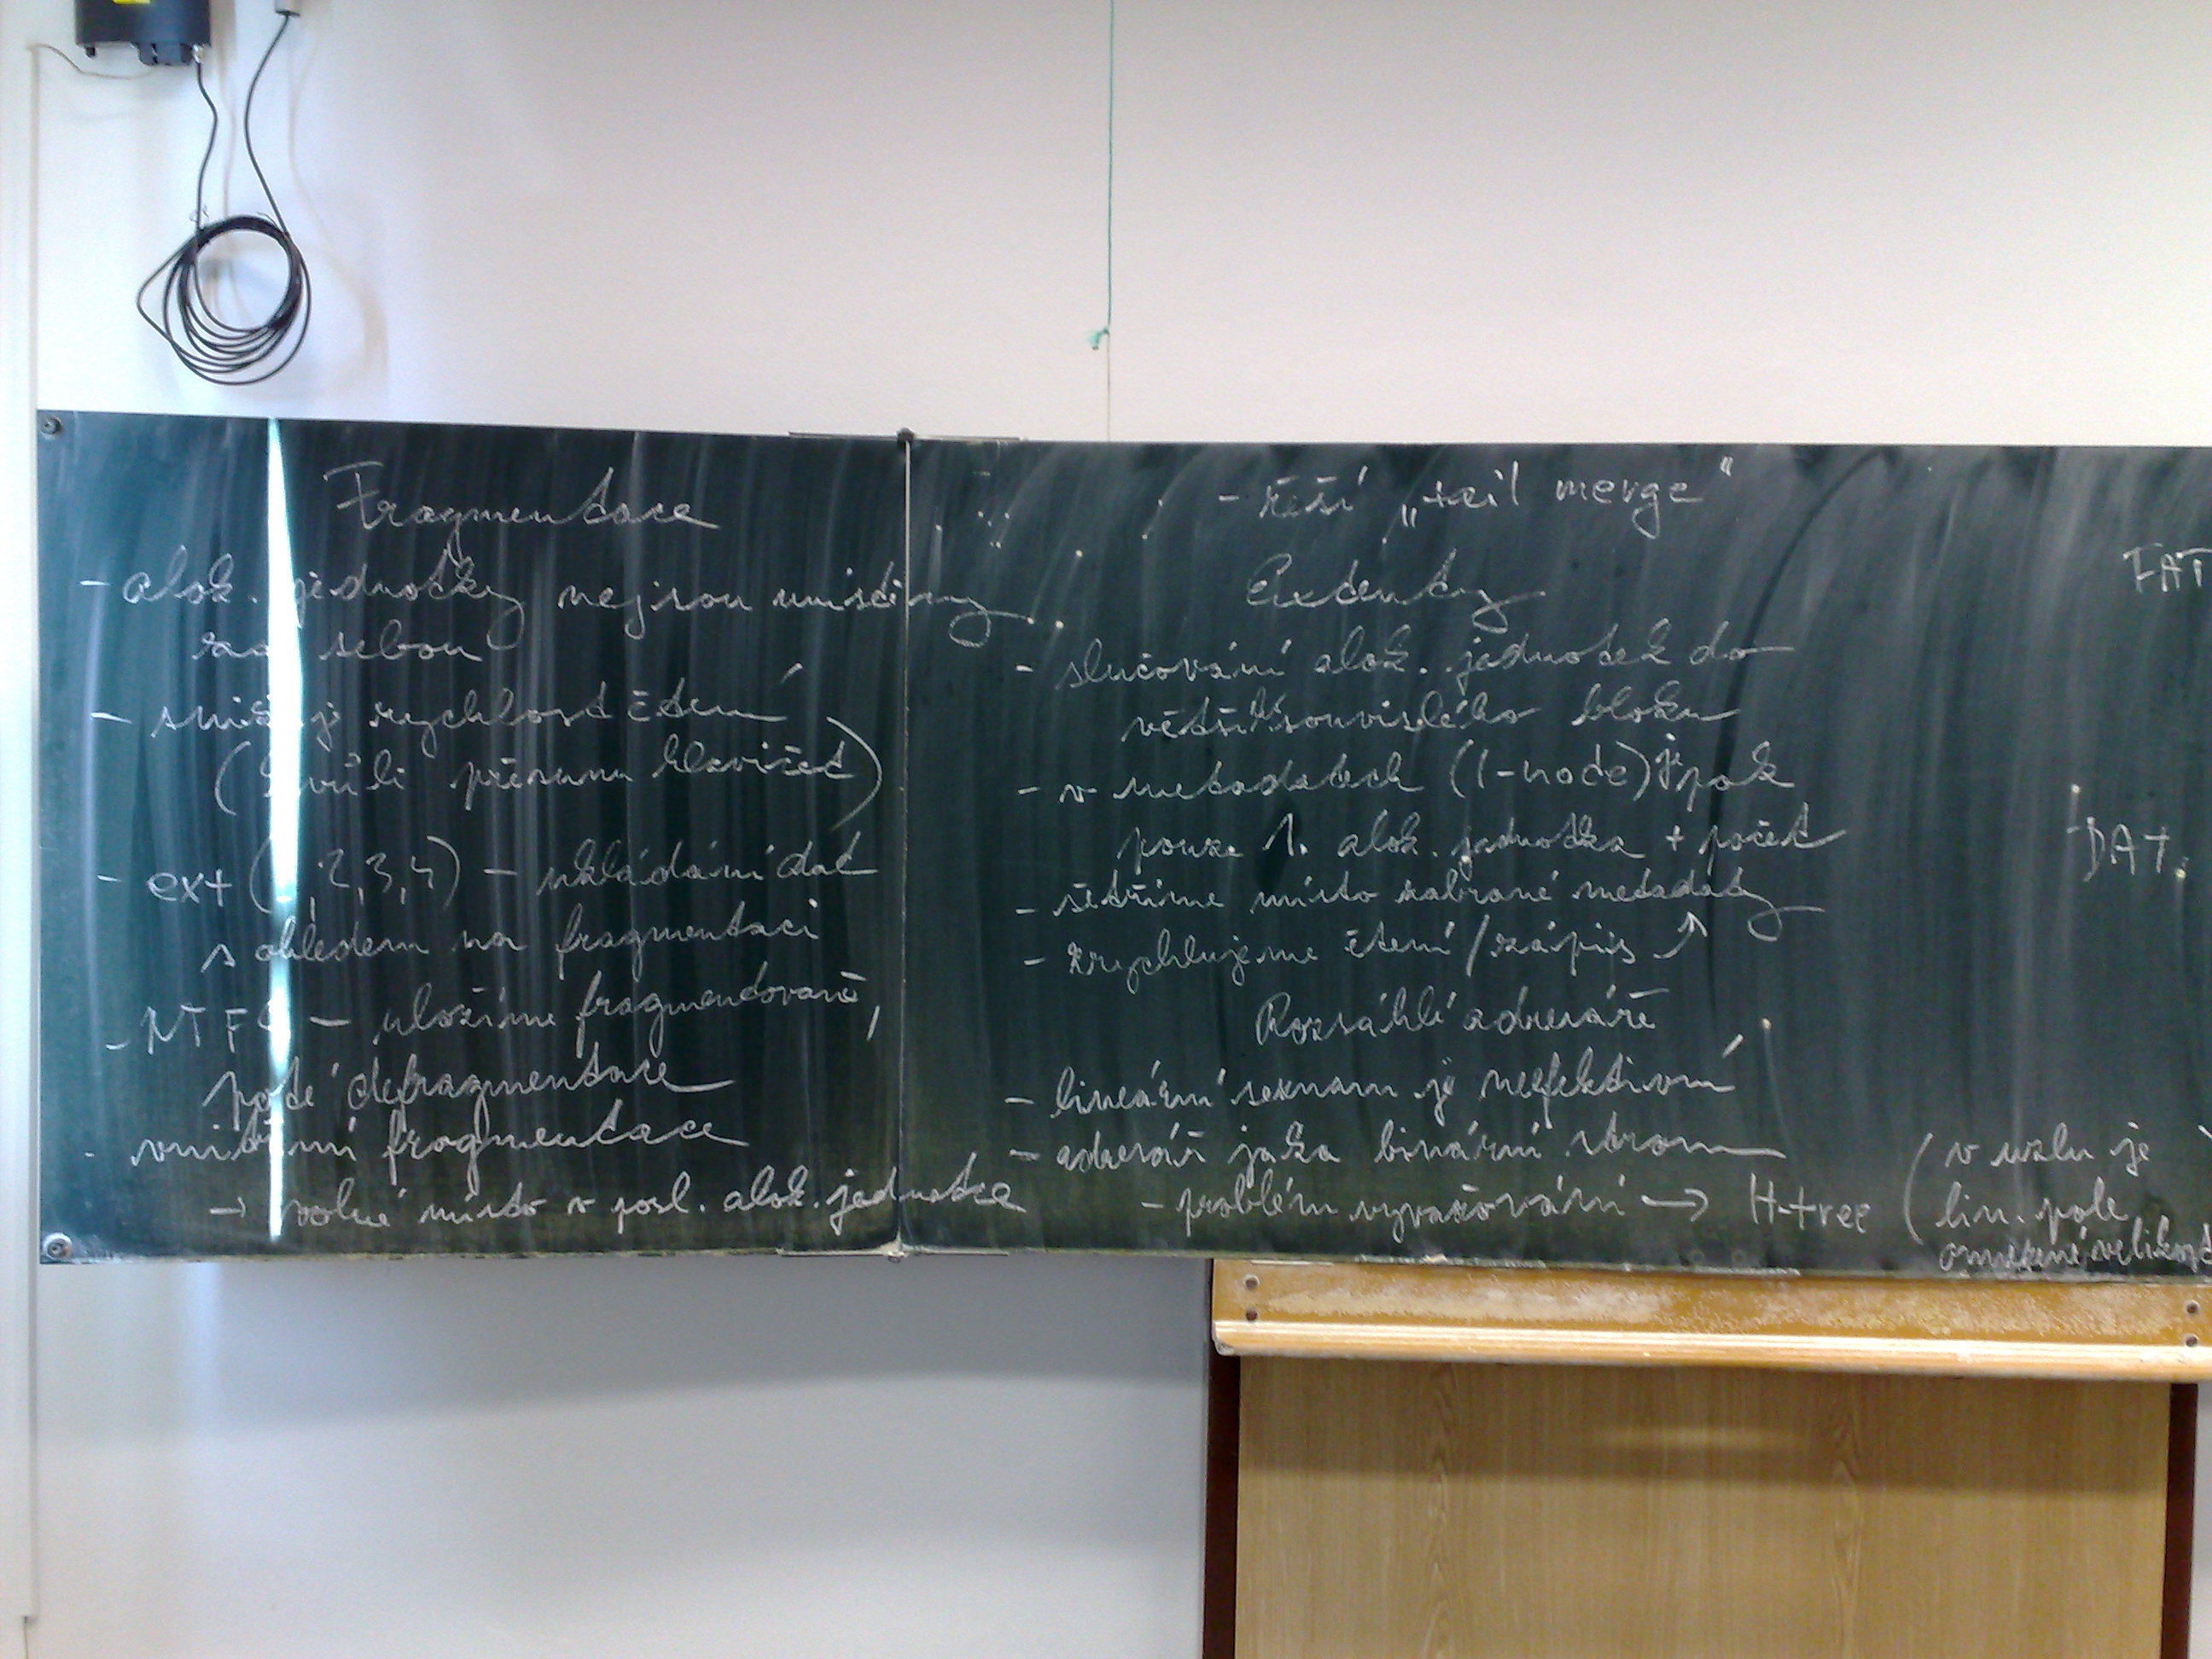 Fragmentace
- alok. jednotky nejsou umístěny
za sebou
- snižuje rychlost čtení
(kvůli přesunu hlaviček)
- ext (,2,3,4) - ukládání dat
s ohledem na fragmentaci
- NTFS - uložíme fragmentovaně,
poté defragmentace
- vnitřní fragmentace
→ volné místo v posl. alok. jednotce
- řeší „tail merge"
Extenty
- slučování alok. jednotek do
většího souvislého bloku
- v metadatech (I-node) je pak
pouze 1. alok. jednotka + počet
- šetříme místo zabrané metadaty
- zrychlujeme čtení/zápis ↗
Rozsáhlé adresáře
- lineární seznam je neefektivní
- adresář jako binární strom
- problém vyvažování → H-tree
(v uzlu je
lin. pole
omezené
FAT
DAT.